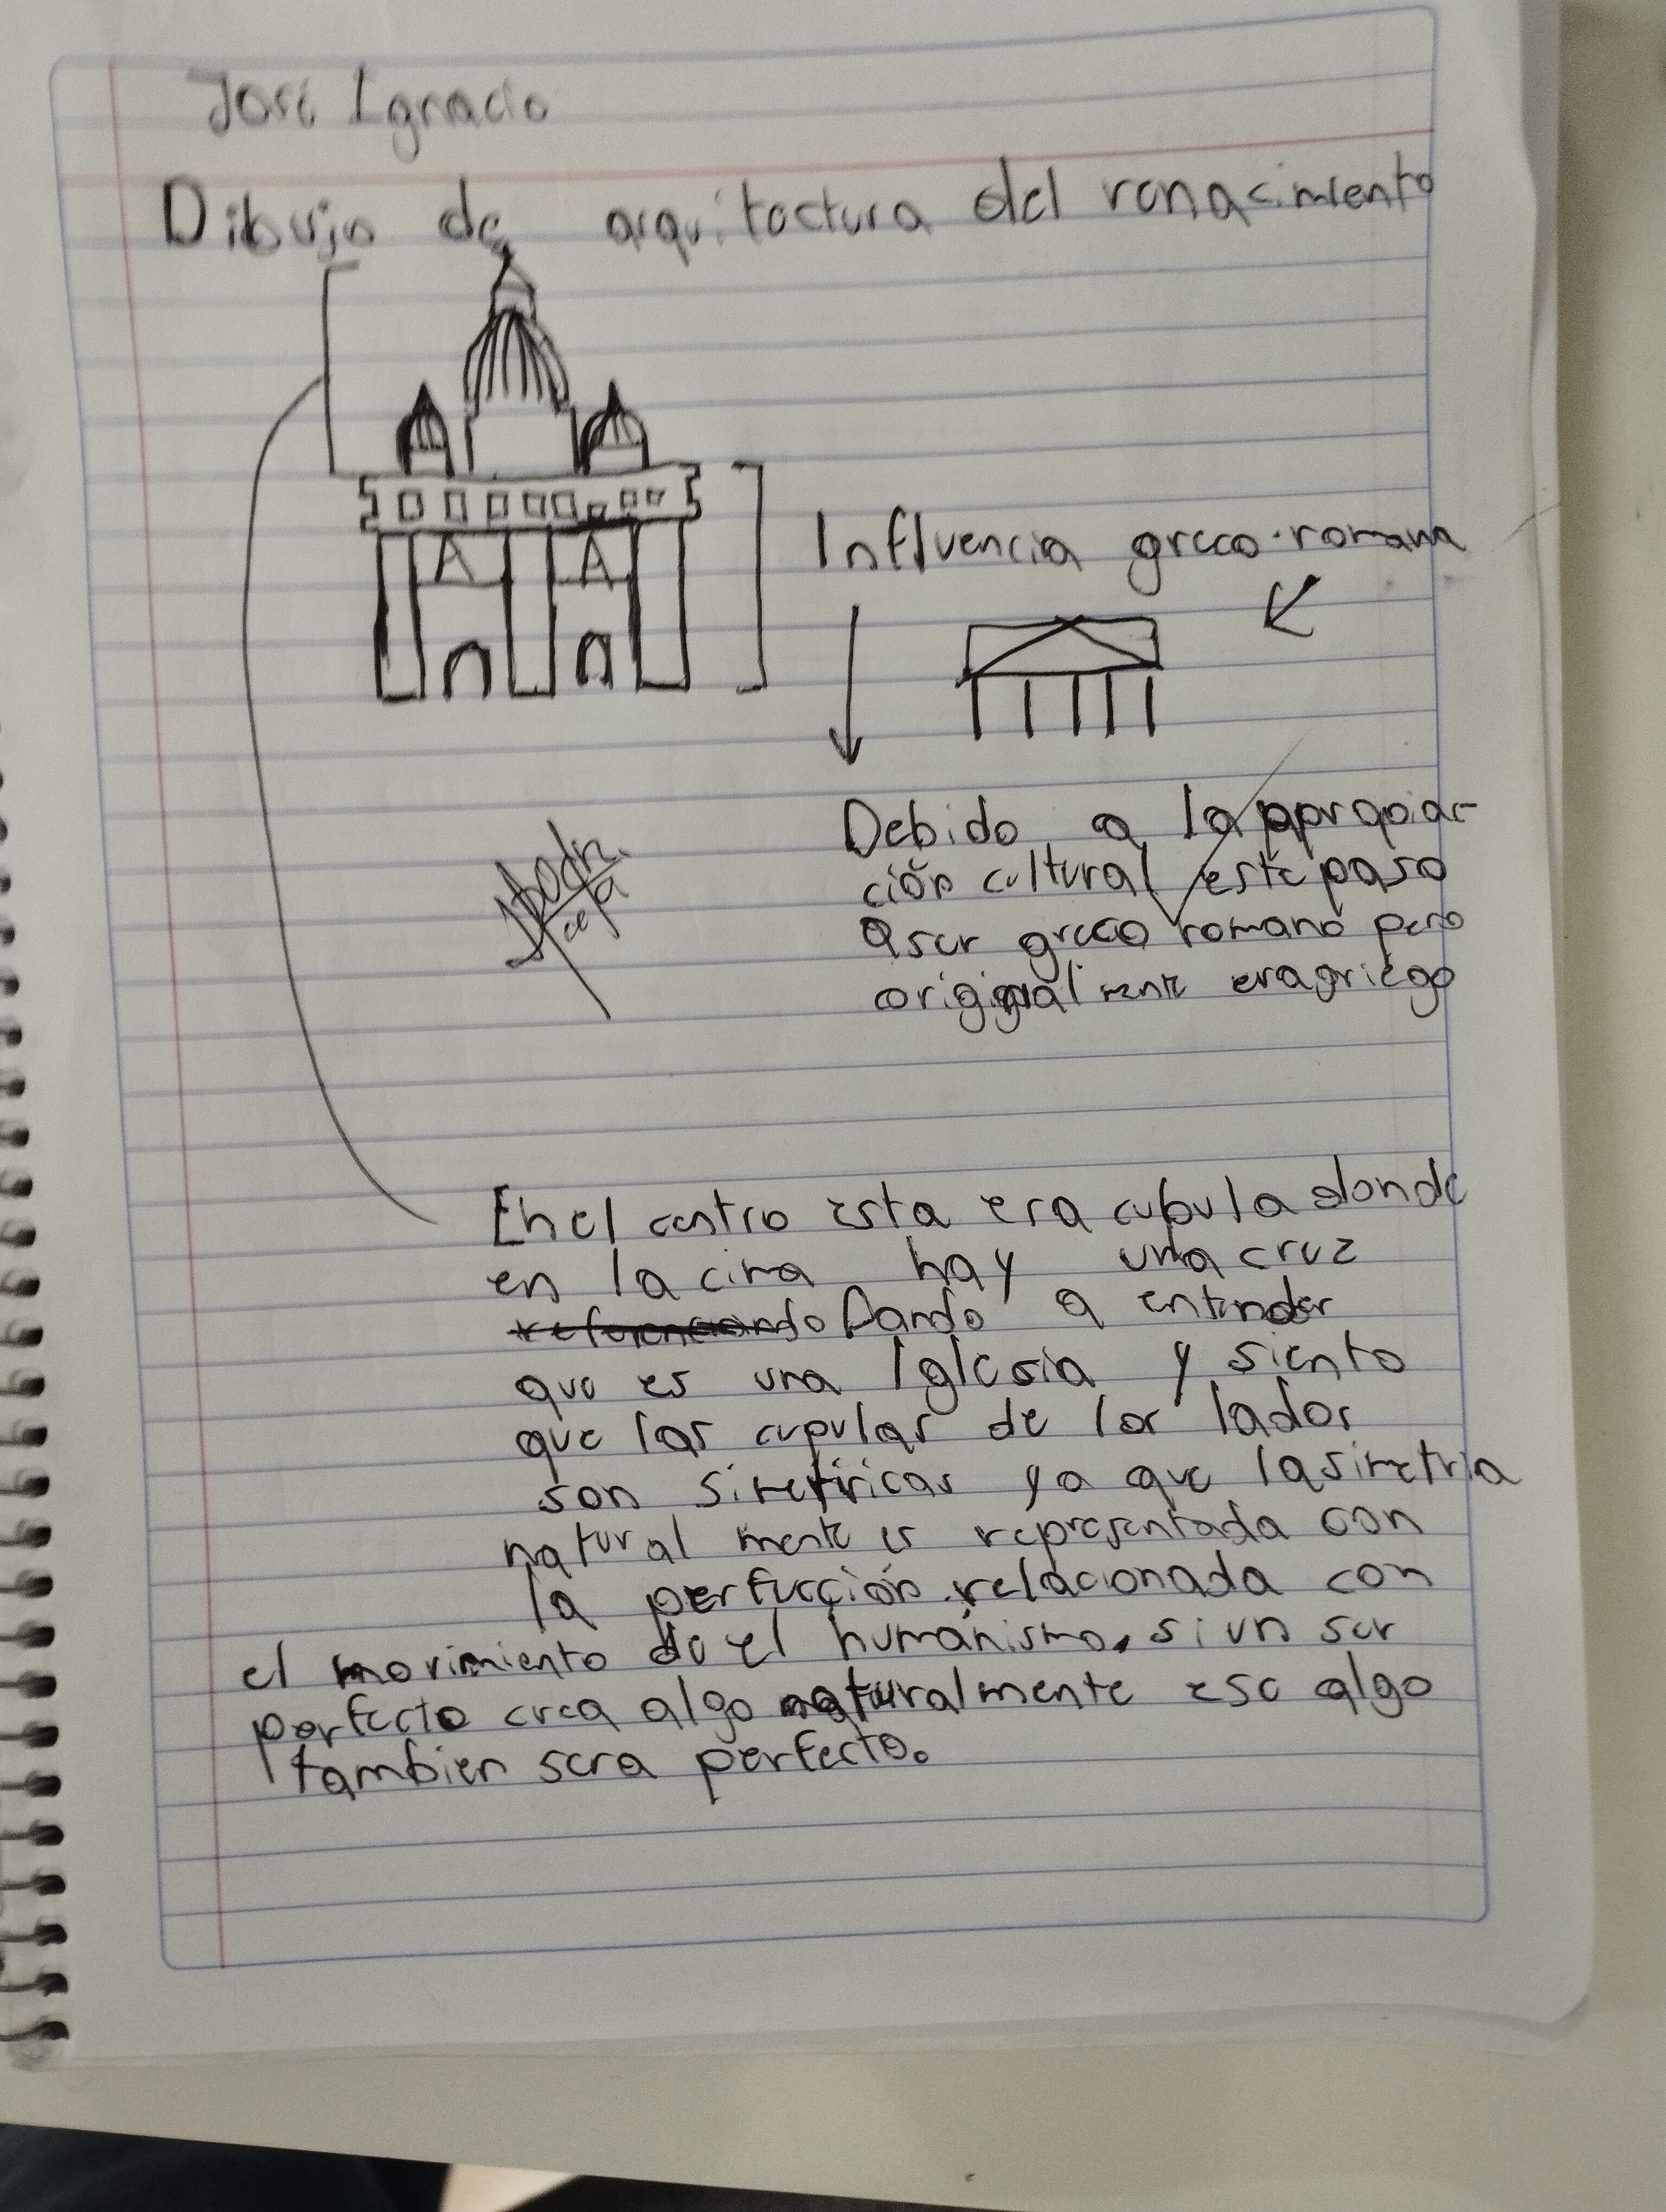 José Ignacio
Dibujo de arquitectura del renacimiento
Influencia greco-romana
Debido a la apropiac-
ción cultural este paso
a ser greco romano pero
originalmente era griego
En el centro esta era cupula donde
en la cima hay una cruz
referenciando Dando a entender
que es una Iglesia y siento
que las cupulas de los lados
son simetricas ya que la simetria
naturalmente es representada con
la perfección relacionada con
el movimiento de el humánismo, si un ser
perfecto crea algo naturalmente ese algo
tambien sera perfecto.